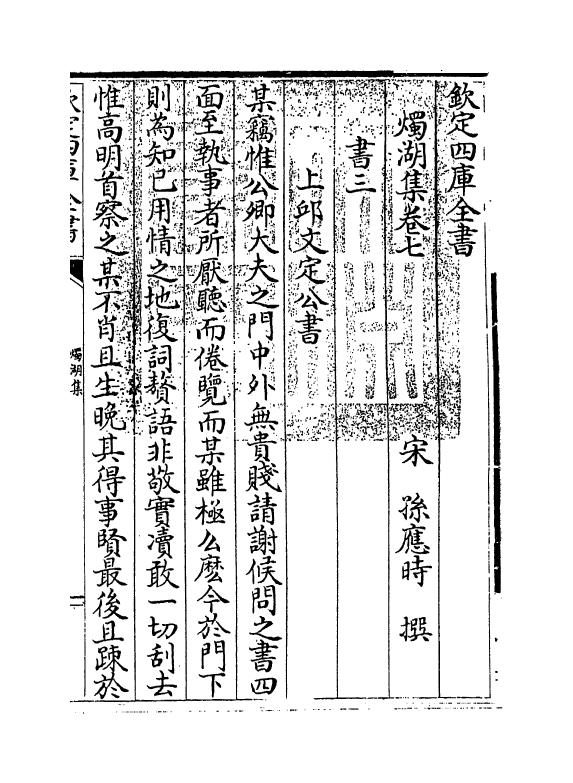 欽定四庫全書
燭湖集卷七
宋　孫應時　撰
書三
上邱文定公書
某竊惟公卿大夫之門中外無貴賤請謝候問之書四
面至執事者所厭聽而倦覽而某雖極么麽今於門下
則為知己用情之地復詞贅語非敬實凟敢一切刮去
惟高明首察之某不肖且生晚其得事賢最後且踈於
欽定四庫全書
燭湖集